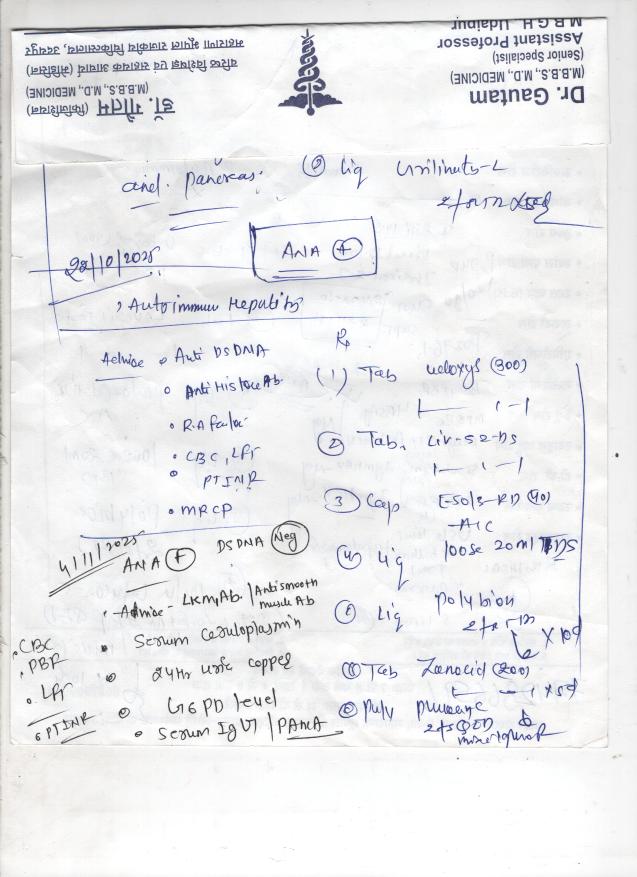 Dr. Gautam
(M.B.B.S., M.D., MEDICINE)
(Senior Specialist)
Assistant Professor
M.B.G.H. Udaipur
डॉ. गौतम (फिजिशियन)
(M.B.B.S., M.D., MEDICINE)
वरिष्ठ विशेषज्ञ एवं सहायक आचार्य (मेडिसिन)
महाराणा भूपाल राजकीय चिकित्सालय, उदयपुर
and. Pancreas.
Liq
22/10/2025
ANA +
? Autoimmune Hepatitis
Advise • Anti DSDNA
• Anti Histone Ab
• R.A factor
• CBC, LFT
• PTINR
• MRCP
Rx
(1) Tab udoxyl (300)
1 — 1 — 1
(2) Tab. Liv-52-DS
1 — 1 — 1
(3) Cap Esols-RD (40)
- A/C
(4) Liq loose 20ml BDS
Liq Polybion
x 10d
Tab Zanocid (200)
x 5d
4/11/2025
ANA + DSDNA Neg
• Advise - LKM, Ab / Antismooth muscle Ab
• Serum Ceruloplasmin
• 24 Hr urine copper
• G6PD level
• Serum IgG / PANCA
• CBC
• PBF
• LFT
• PTINR